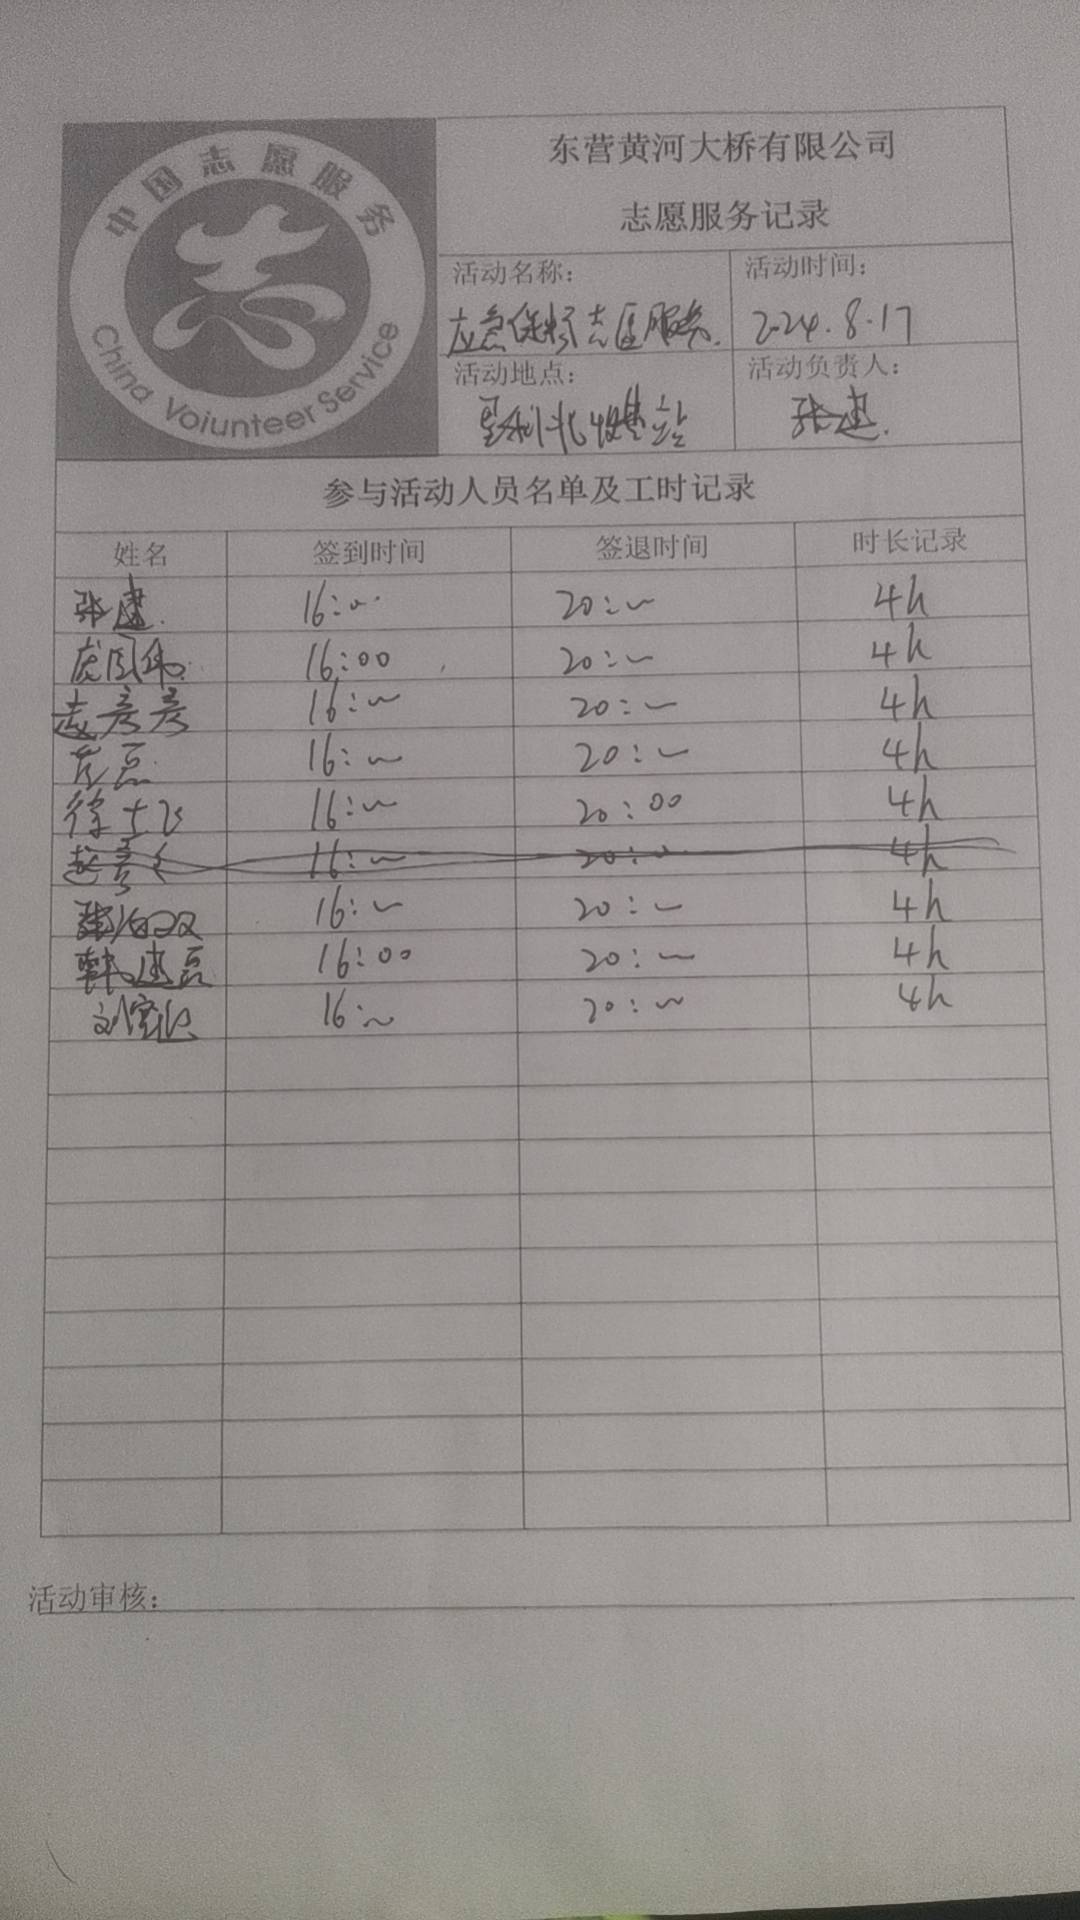 中国志愿服务
China Voiunteer Service
东营黄河大桥有限公司
志愿服务记录
活动名称：
应急保畅志愿服务.
活动时间：
2024.8.17
活动地点：
垦利北收费站
活动负责人：
张建.
参与活动人员名单及工时记录
姓名 签到时间 签退时间 时长记录
张建. 16:00 20:00 4h
16:00 20:00 4h
彦彦 16:00 20:00 4h
磊 16:00 20:00 4h
徐士飞 16:00 20:00 4h
赵彦 16:00 20:00 4h
双 16:00 20:00 4h
韩建磊 16:00 20:00 4h
刘 16:00 20:00 4h
活动审核：